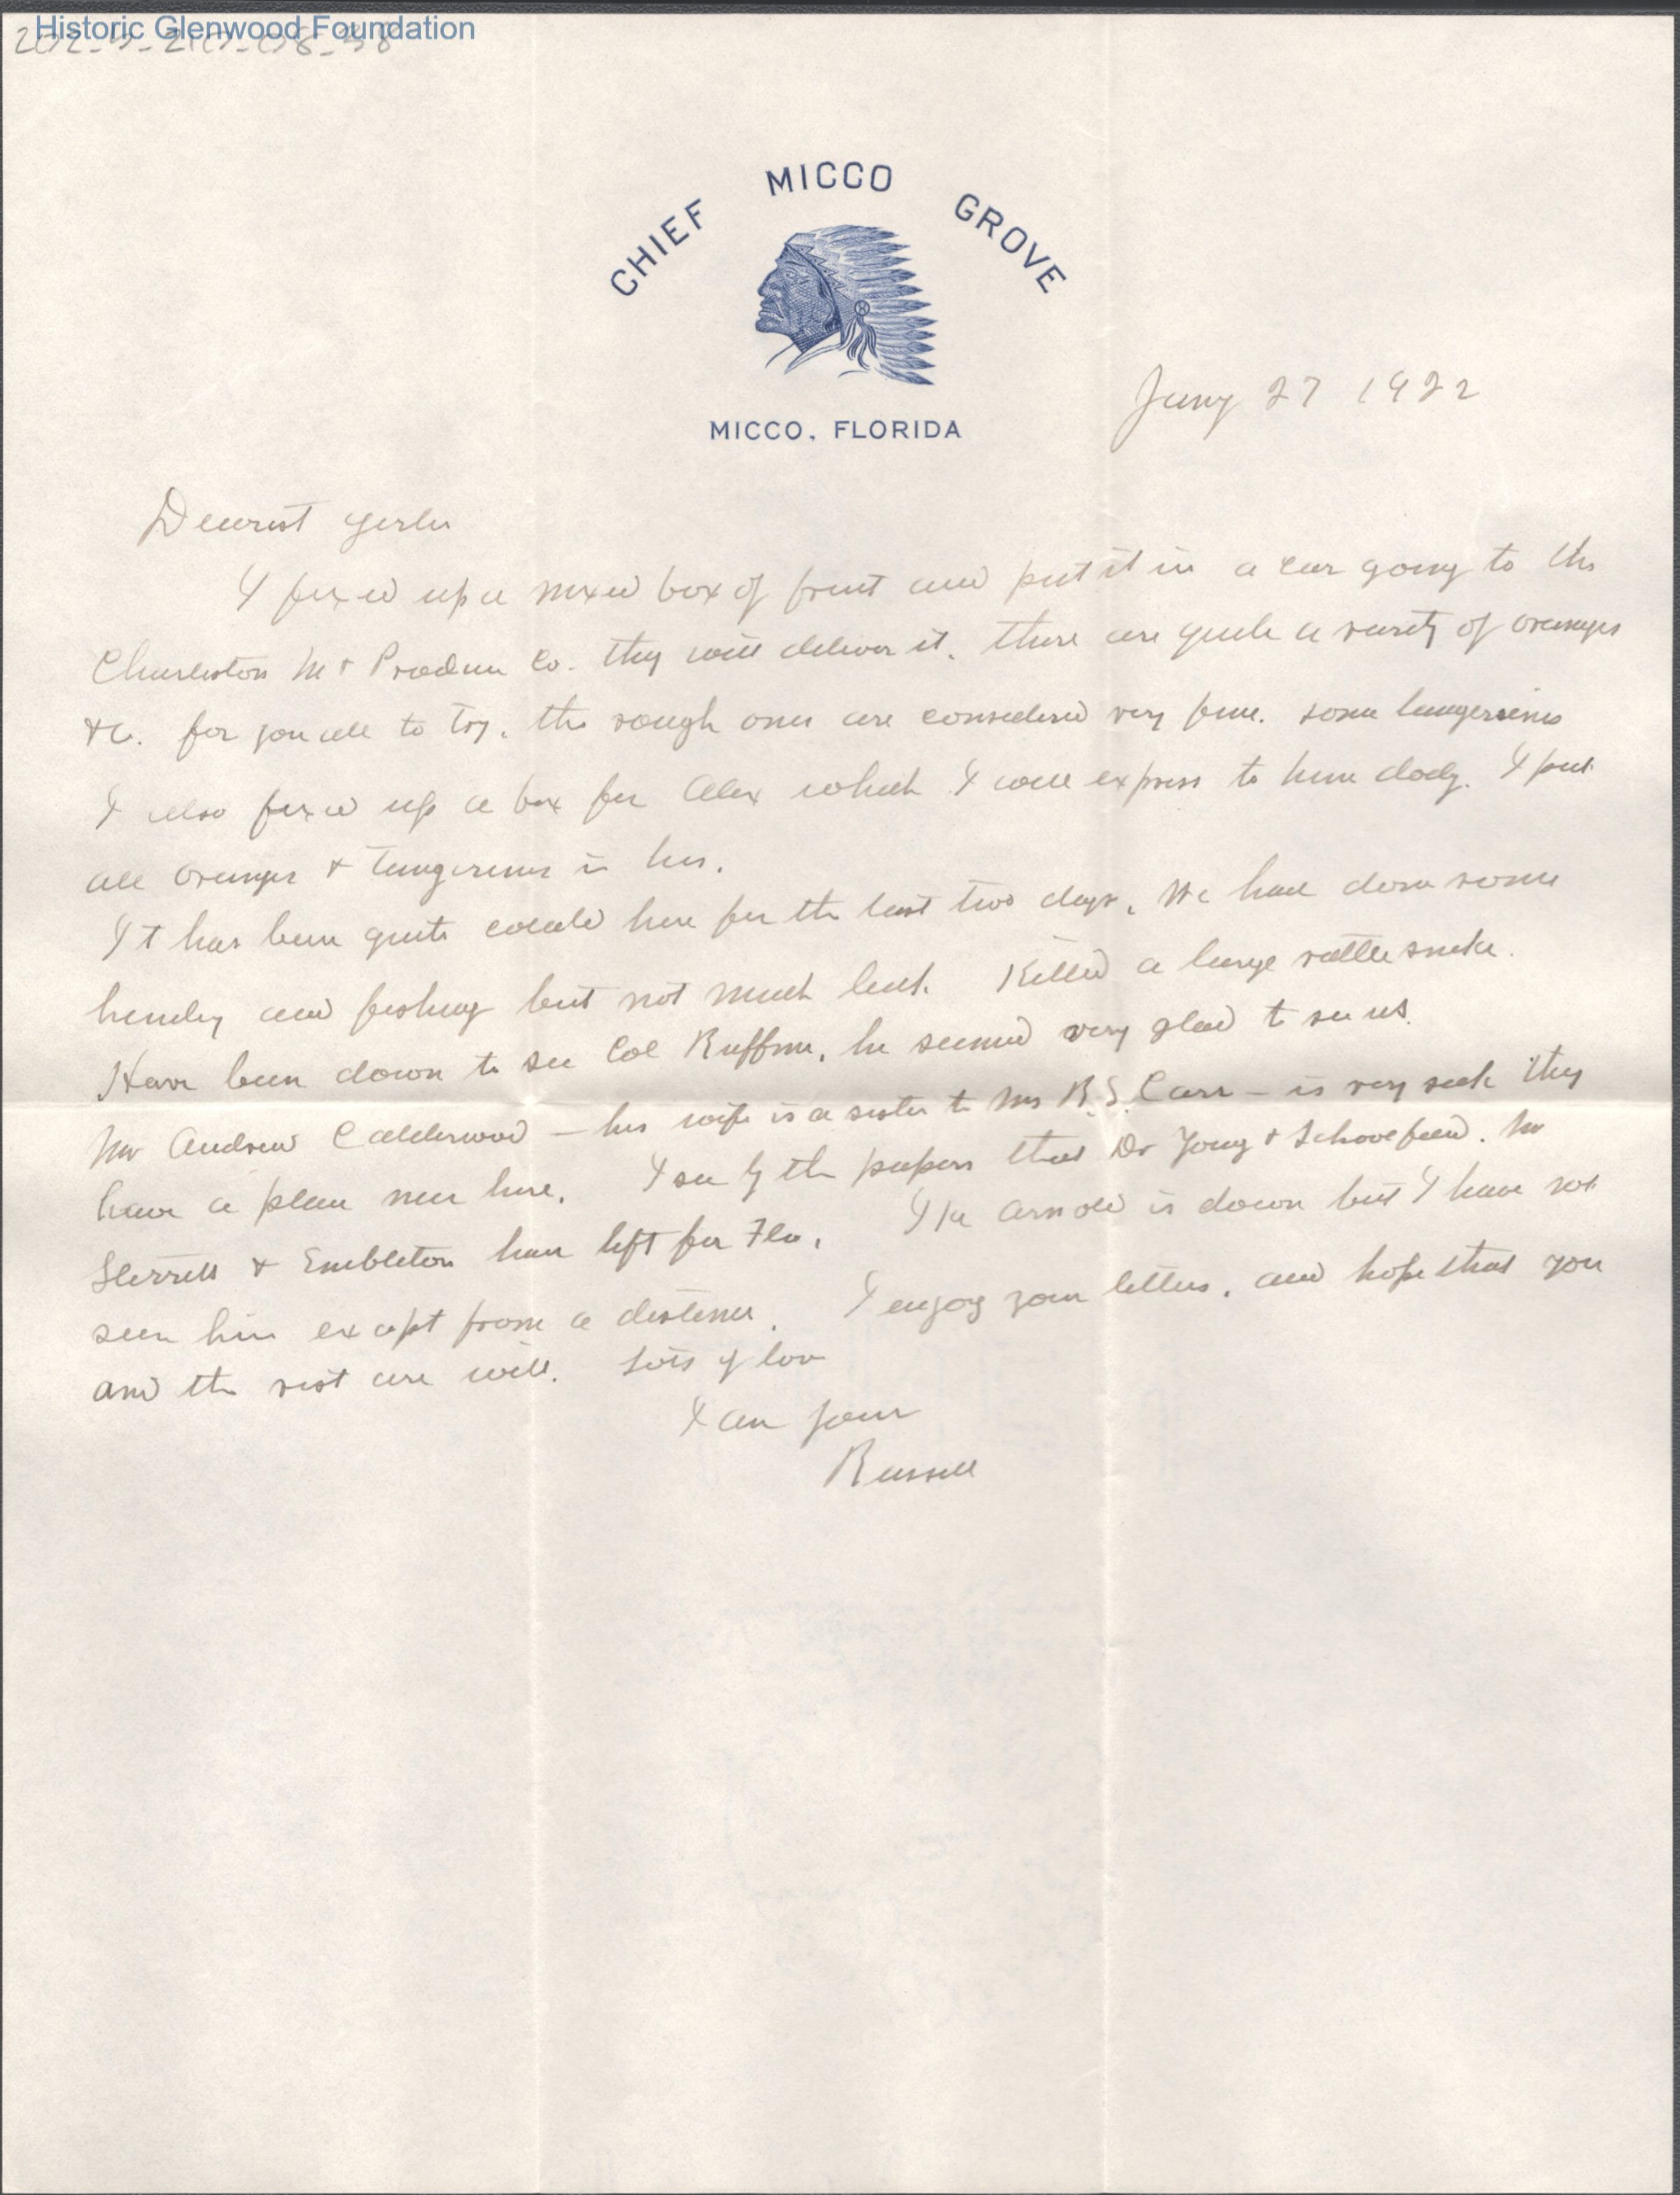 Historic Glenwood Foundation
CHIEF MICCO GROVE
MICCO, FLORIDA
Jany 27 1922
Dearest girls
I fixed up a mixed box of fruit and put it in a car going to the
Charleston M & Produce Co. they will deliver it. there are quite a variety of oranges
&c. for you all to try. the rough ones are considered very fine. some tangerines
I also fixed up a box for Alex which I will express to him today. I put
all oranges & tangerines in his.
It has been quite cold here for the last two days. We have done some
hunting and fishing but not much luck. Killed a large rattle snake.
Have been down to see Col Ruffner, he seemed very glad to see us.
Mr Andrew Calderwood — his wife is a sister to Mrs R.S. Carr — is very sick they
have a place near here. I see by the papers that Dr Young & Schoolfield. Mr
Sterrett & Embleton have left for Fla. Ike Arnold is down but I have not
seen him except from a distance. I enjoy your letters, and hope that you
and the rest are well. Lots of love
I am your
Russell